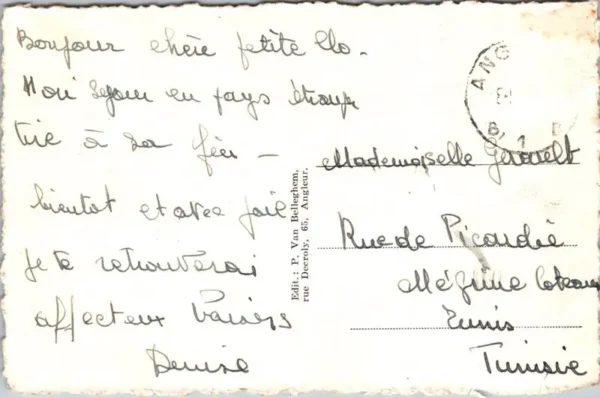 Bonjour chère petite Clo.
Mon séjour en pays étrange
tire à sa fin —
bientôt et avec joie
je te retrouverai
affectueux baisers
Denise
Edit.: P. Van Belleghem,
rue Decroly, 65, Angleur.
ANG
B 1 B
Mademoiselle
Rue de Picardie
Mégrine Coteaux
Tunis
Tunisie